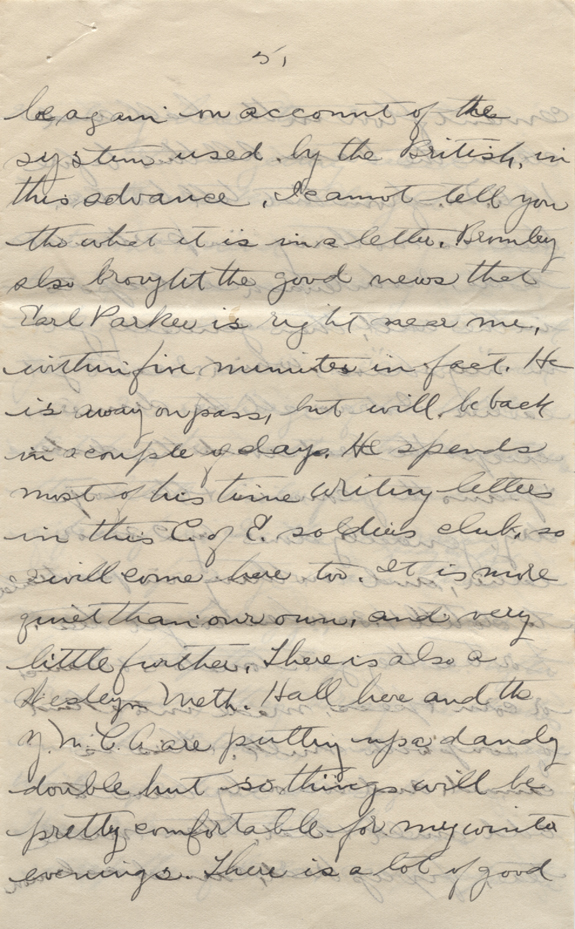 5,
be again on account of the
system used by the British, in
this advance, I cannot tell you
the what it is in a letter. Bromley
also brought the good news that
Earl Parker is right near me,
within five minutes in fact. He
is away on pass, but will be back
in a couple of days. He spends
most of his time writing letters
in this C. of E. soldiers club, so
will come here too. It is more
quiet than our own, and very
little further. There is also a
Wesleyn Meth. Hall here and the
Y.M.C.A. are putting up a dandy
double hut so things will be
pretty comfortable for my winter
evenings. There is a lot of good